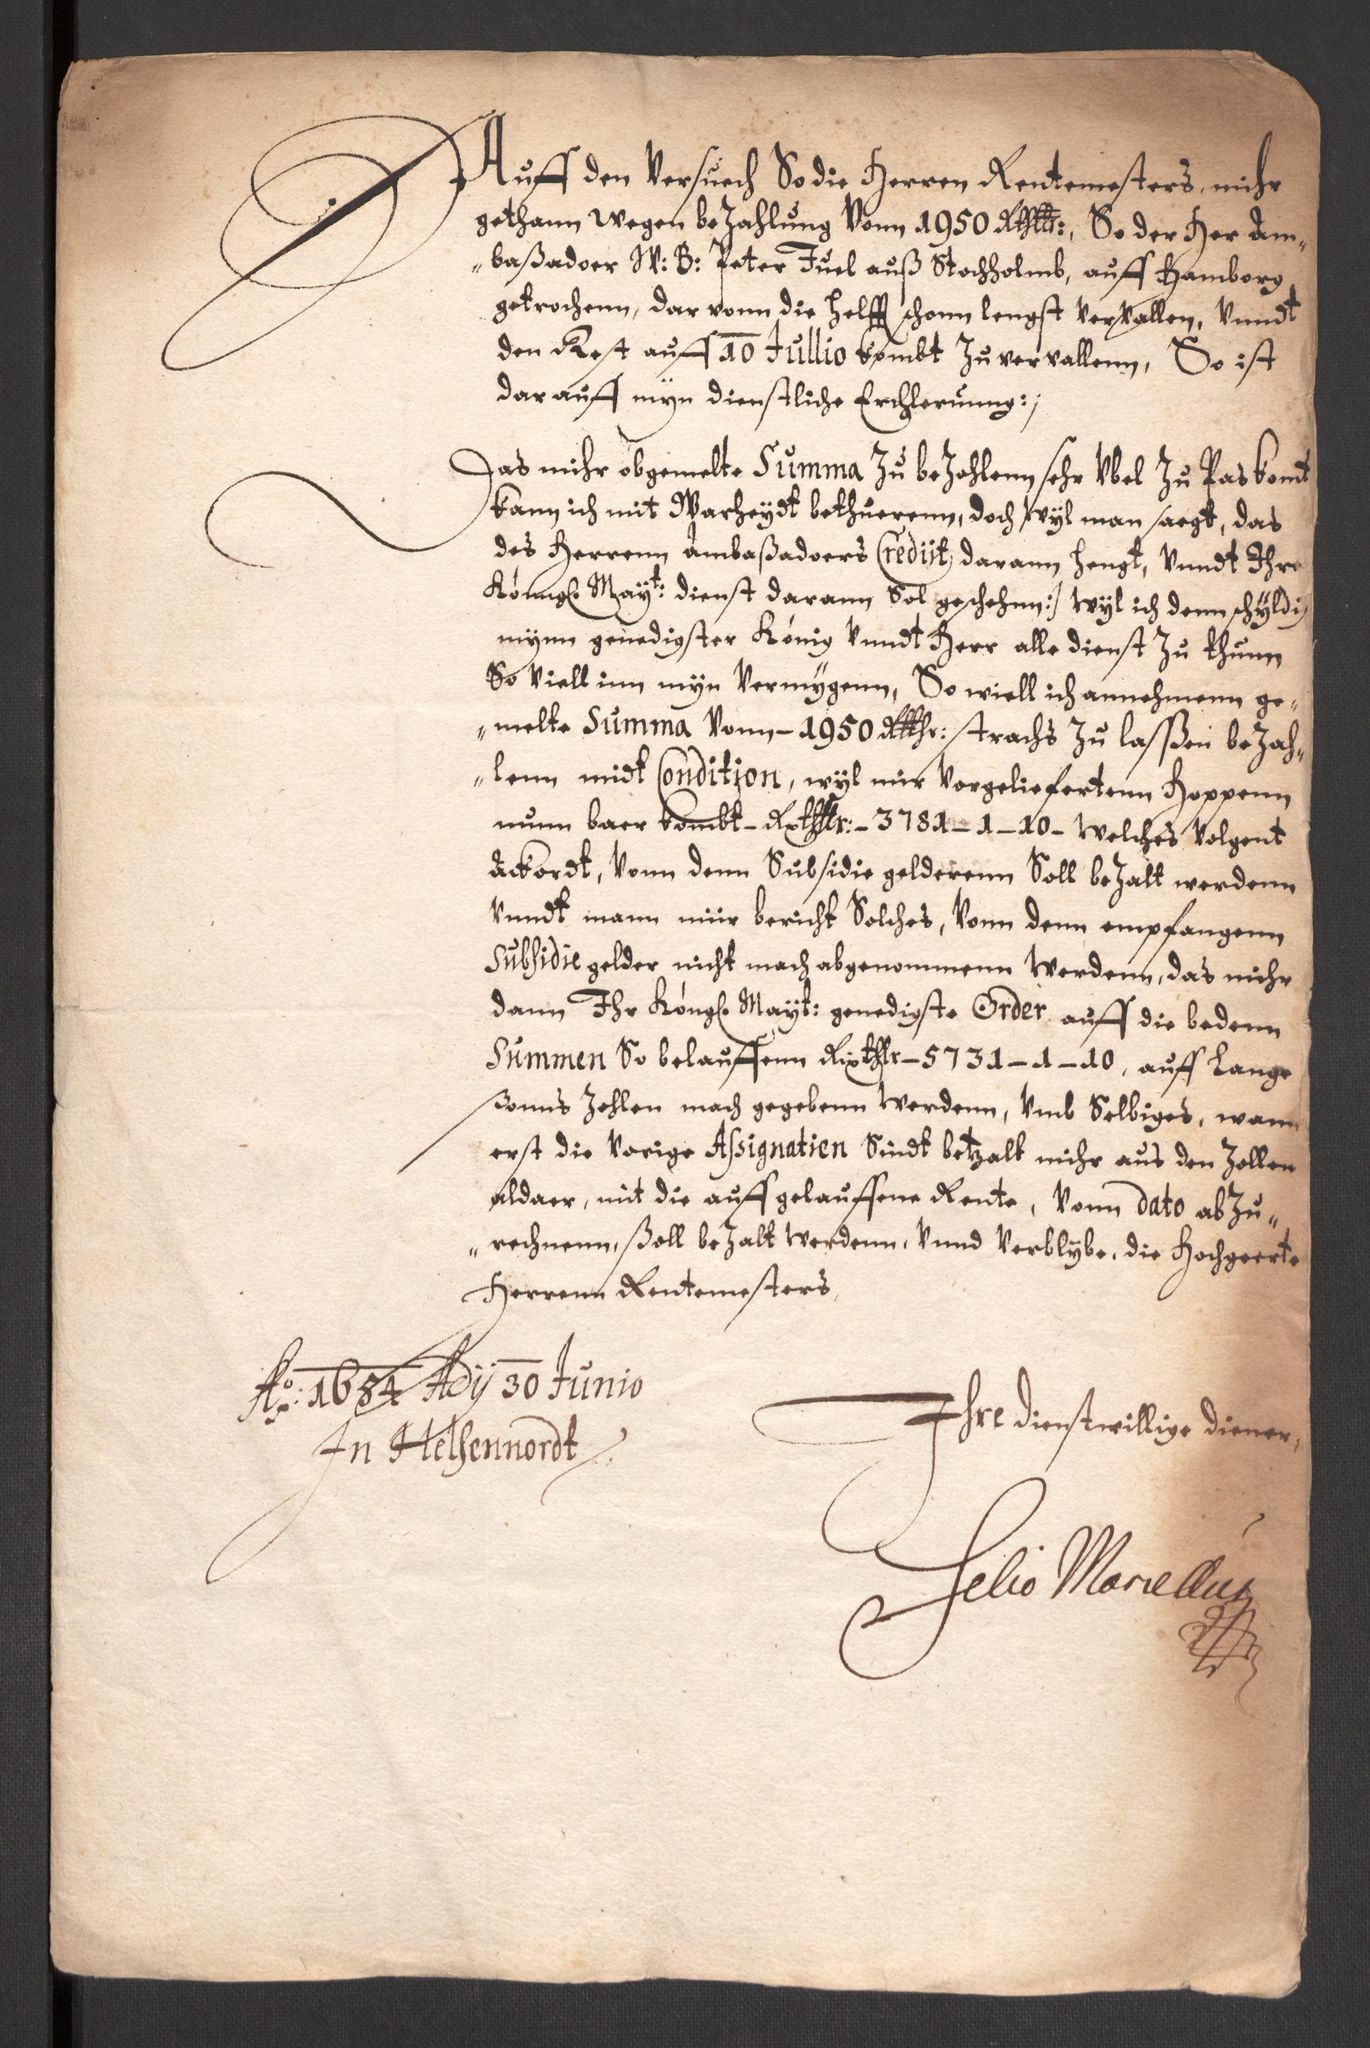 Auff den Versuech So die Herren Rentemesters, mihr
gethann wegen beZahlung Vonn 1950 Rthlr:, So der Her Am-
"baßadoer W: B: Peter Juel auß Stochholmb, auff Hamborg
getrochenn, dar vonn die helfft schonn lengst vervallen, Vnndt
den Rest auff 10 Jullio kombt Zu vervallenn, So ist
darauff myn dienstliche Erchlerunng:,
Das mihr obgemelte Summa Zu beZahlenn sehr Vbel Zu Pas komt
kann ich mit Warheydt bethuerenn, doch wyl man saegt, das
des Herrenn Ambaßadoers Crediit darann hengt, Vnndt Ihre
Könngl. Mayt: dienst darann Sol geschehnn:/ wyl ich denn schyldig
mynn genedigster König Vnndt Herr alle dienst Zu thunn
So Viell inn myn Vermygenn, So wiell ich annehmenn ge-
"melte Summa Vonn - 1950 Rthlr: strachs Zu lasßen beZah-
"lenn midt Condition, wyl mir Vorgeliefertenn Hoppenn
nunn baer kombt - Rixthlr: - 3781 - 1 - 10 - Welches Volgent
Ackordt, Vonn denn Subsidie gelderenn Soll beZalt werdenn
Vnndt mann miir bericht Solches, Vonn denn empfangenn
Subsidie gelder nicht mach abgenommenn Werdenn, das mihr
dann Ihr Köngl. Mayt: genedigste Order auff die bedenn
Summen So belauffenn Rixthlr - 5731 - 1 - 10, auff Lange
ßonns Zohlen mach gegebenn Werdenn, Vmb Selbiges, wann
erst die Vorige Assignatien Sindt betzalt mihr aus den Zollen
aldaer, mit die auffgelauffene Rente, Vonn dato abZu-
"rechnenn, ßoll beZalt Werdenn, Vnnd Verblybe, die Hochgeerte
Herrenn Rentemesters,
Ao: 1654 Adij 30 Junio
In Helsennordt
Ihre dienstwillige diener,
Selio Marsellius